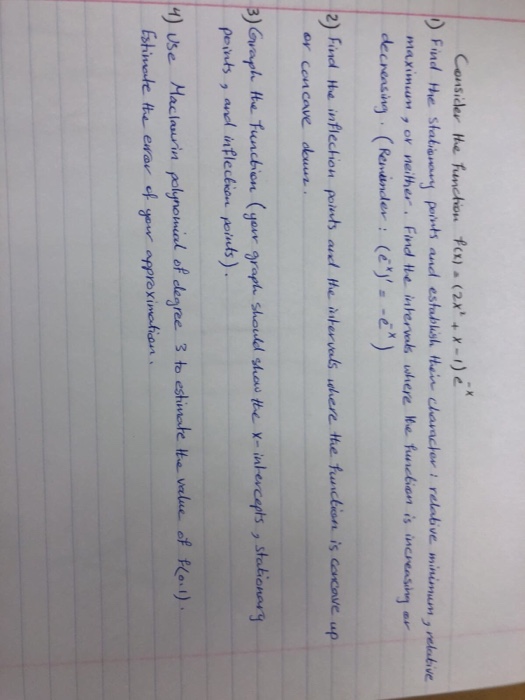 Consider the function f(x) = (2x² + x − 1) e⁻ˣ
1) Find the stationary points and establish their character: relative minimum, relative
maximum, or neither. Find the intervals where the function is increasing or
decreasing. (Reminder: (e⁻ˣ)' = −e⁻ˣ)
2) Find the inflection points and the intervals where the function is concave up
or concave down.
3) Graph the function (your graph should show the x-intercepts, stationary
points, and inflection points).
4) Use Maclaurin polynomial of degree 3 to estimate the value of f(0.1).
Estimate the error of your approximation.